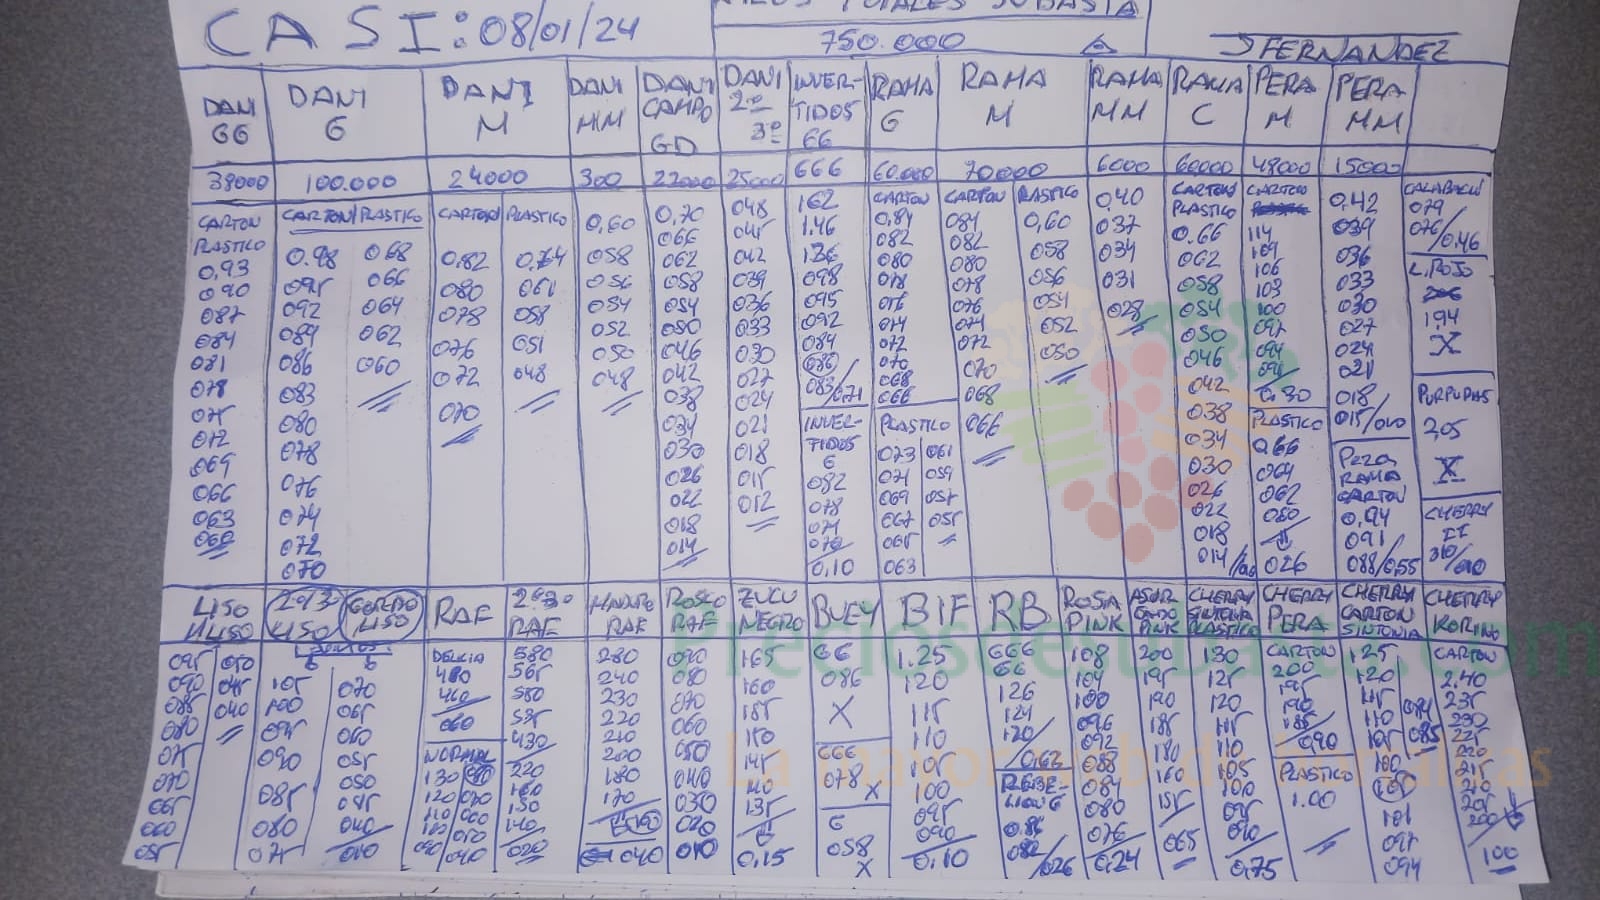 CASI: 08/01/24
KILOS TOTALES SUBASTA
750.000
J FERNANDEZ
DANI GG
DANI G
DANI M
DANI MM
DANI CAMPO GD
DANI 2ª 3ª
INVERTIDOS GG
RAMA G
RAMA M
RAMA MM
RAMA C
PERA M
PERA MM
38000
100.000
24000
300
22000
25000
666
60.000
70000
6000
60000
48000
15000
CARTON
PLASTICO
0,93
090
087
084
081
078
075
072
069
066
063
060
CARTON/PLASTICO
0.98 068
095 066
092 064
089 062
086 060
083
080
078
076
074
072
070
CARTON/PLASTICO
0.82 0.64
080 061
078 058
076 051
072 048
070
0,60
058
056
054
052
050
048
0,70
066
062
058
054
050
046
042
038
034
030
026
022
018
014
048
045
042
039
036
033
030
027
024
021
018
015
012
162
1.46
1.26
098
095
092
084
080
083/071
INVER-
TIDOS
G
082
078
074
070
0,10
CARTON
0,84
082
080
078
076
074
072
070
068
066
PLASTICO
073 061
071 059
069 057
067 055
065
063
CARTON PLASTICO
084 0,60
082 058
080 056
078 054
076 052
074 050
072
070
068
066
0,40
037
034
031
028
CARTON
PLASTICO
0.66
062
058
054
050
046
042
038
034
030
026
022
018
014
CARTON
114
109
106
103
100
097
094
091
0,30
PLASTICO
0,66
064
062
060
026
0,42
039
036
033
030
027
024
021
018
015/010
PERA
RAMA
CARTON
0,94
091
088/055
CALABACIN
079
076/0,46
L. ROJO
194
X
PURPURAS
2,05
X
CHERRY
II
310/010
450
11450
2ª/3ª
450
GORDO
1450
RAF
2ª 3ª
RAF
MADURO
RAF
ROSCO
RAF
ZUCU
NEGRO
BUEY
BIF
RB
ROSA
PINK
ASUR
CADO
PINK
CHERRY
SINTONIA
PLASTICO
CHERRY
PERA
CHERRY
CARTON
SINTONIA
CHERRY
KORINO
095 050
090 045
085 040
080
075
070
065
060
055
105 070
100 065
095 060
090 055
085 050
080 045
075 040
010
DELICIA
480
460
060
NORMAL
130 080
120 070
110 060
100 050
090 040
580
565
550
535
430
220
160
150
140
020
280
240
230
220
210
200
180
170
040
090
080
070
060
050
040
030
020
010
165
160
155
150
145
140
135
0,15
GG
086
X
GGG
078 X
G
058
X
1.25
120
115
110
105
100
095
090
0,10
GGG
GG
126
124
120
/062
REBE-
LION G
0.86
082
/026
108
104
100
096
092
088
084
080
076
0,24
200
195
190
185
180
160
155
065
130
125
120
115
110
105
100
095
090
0,75
CARTON
200
195
190
185
/090
PLASTICO
1.00
125
120
115
110 089
105 085
100
105
101
097
094
CARTON
2,40
235
230
225
220
215
210
205
200
100
Preciosdesubasta.com